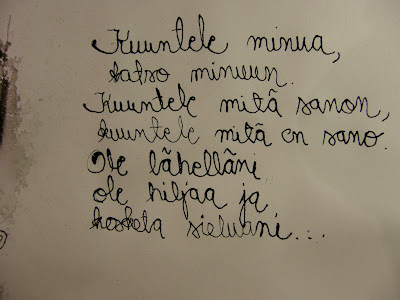 Kuuntele minua,
katso minuun.
Kuuntele mitä sanon,
kuuntele mitä en sano.
Ole lähelläni
ole hiljaa ja
kosketa sieluani...